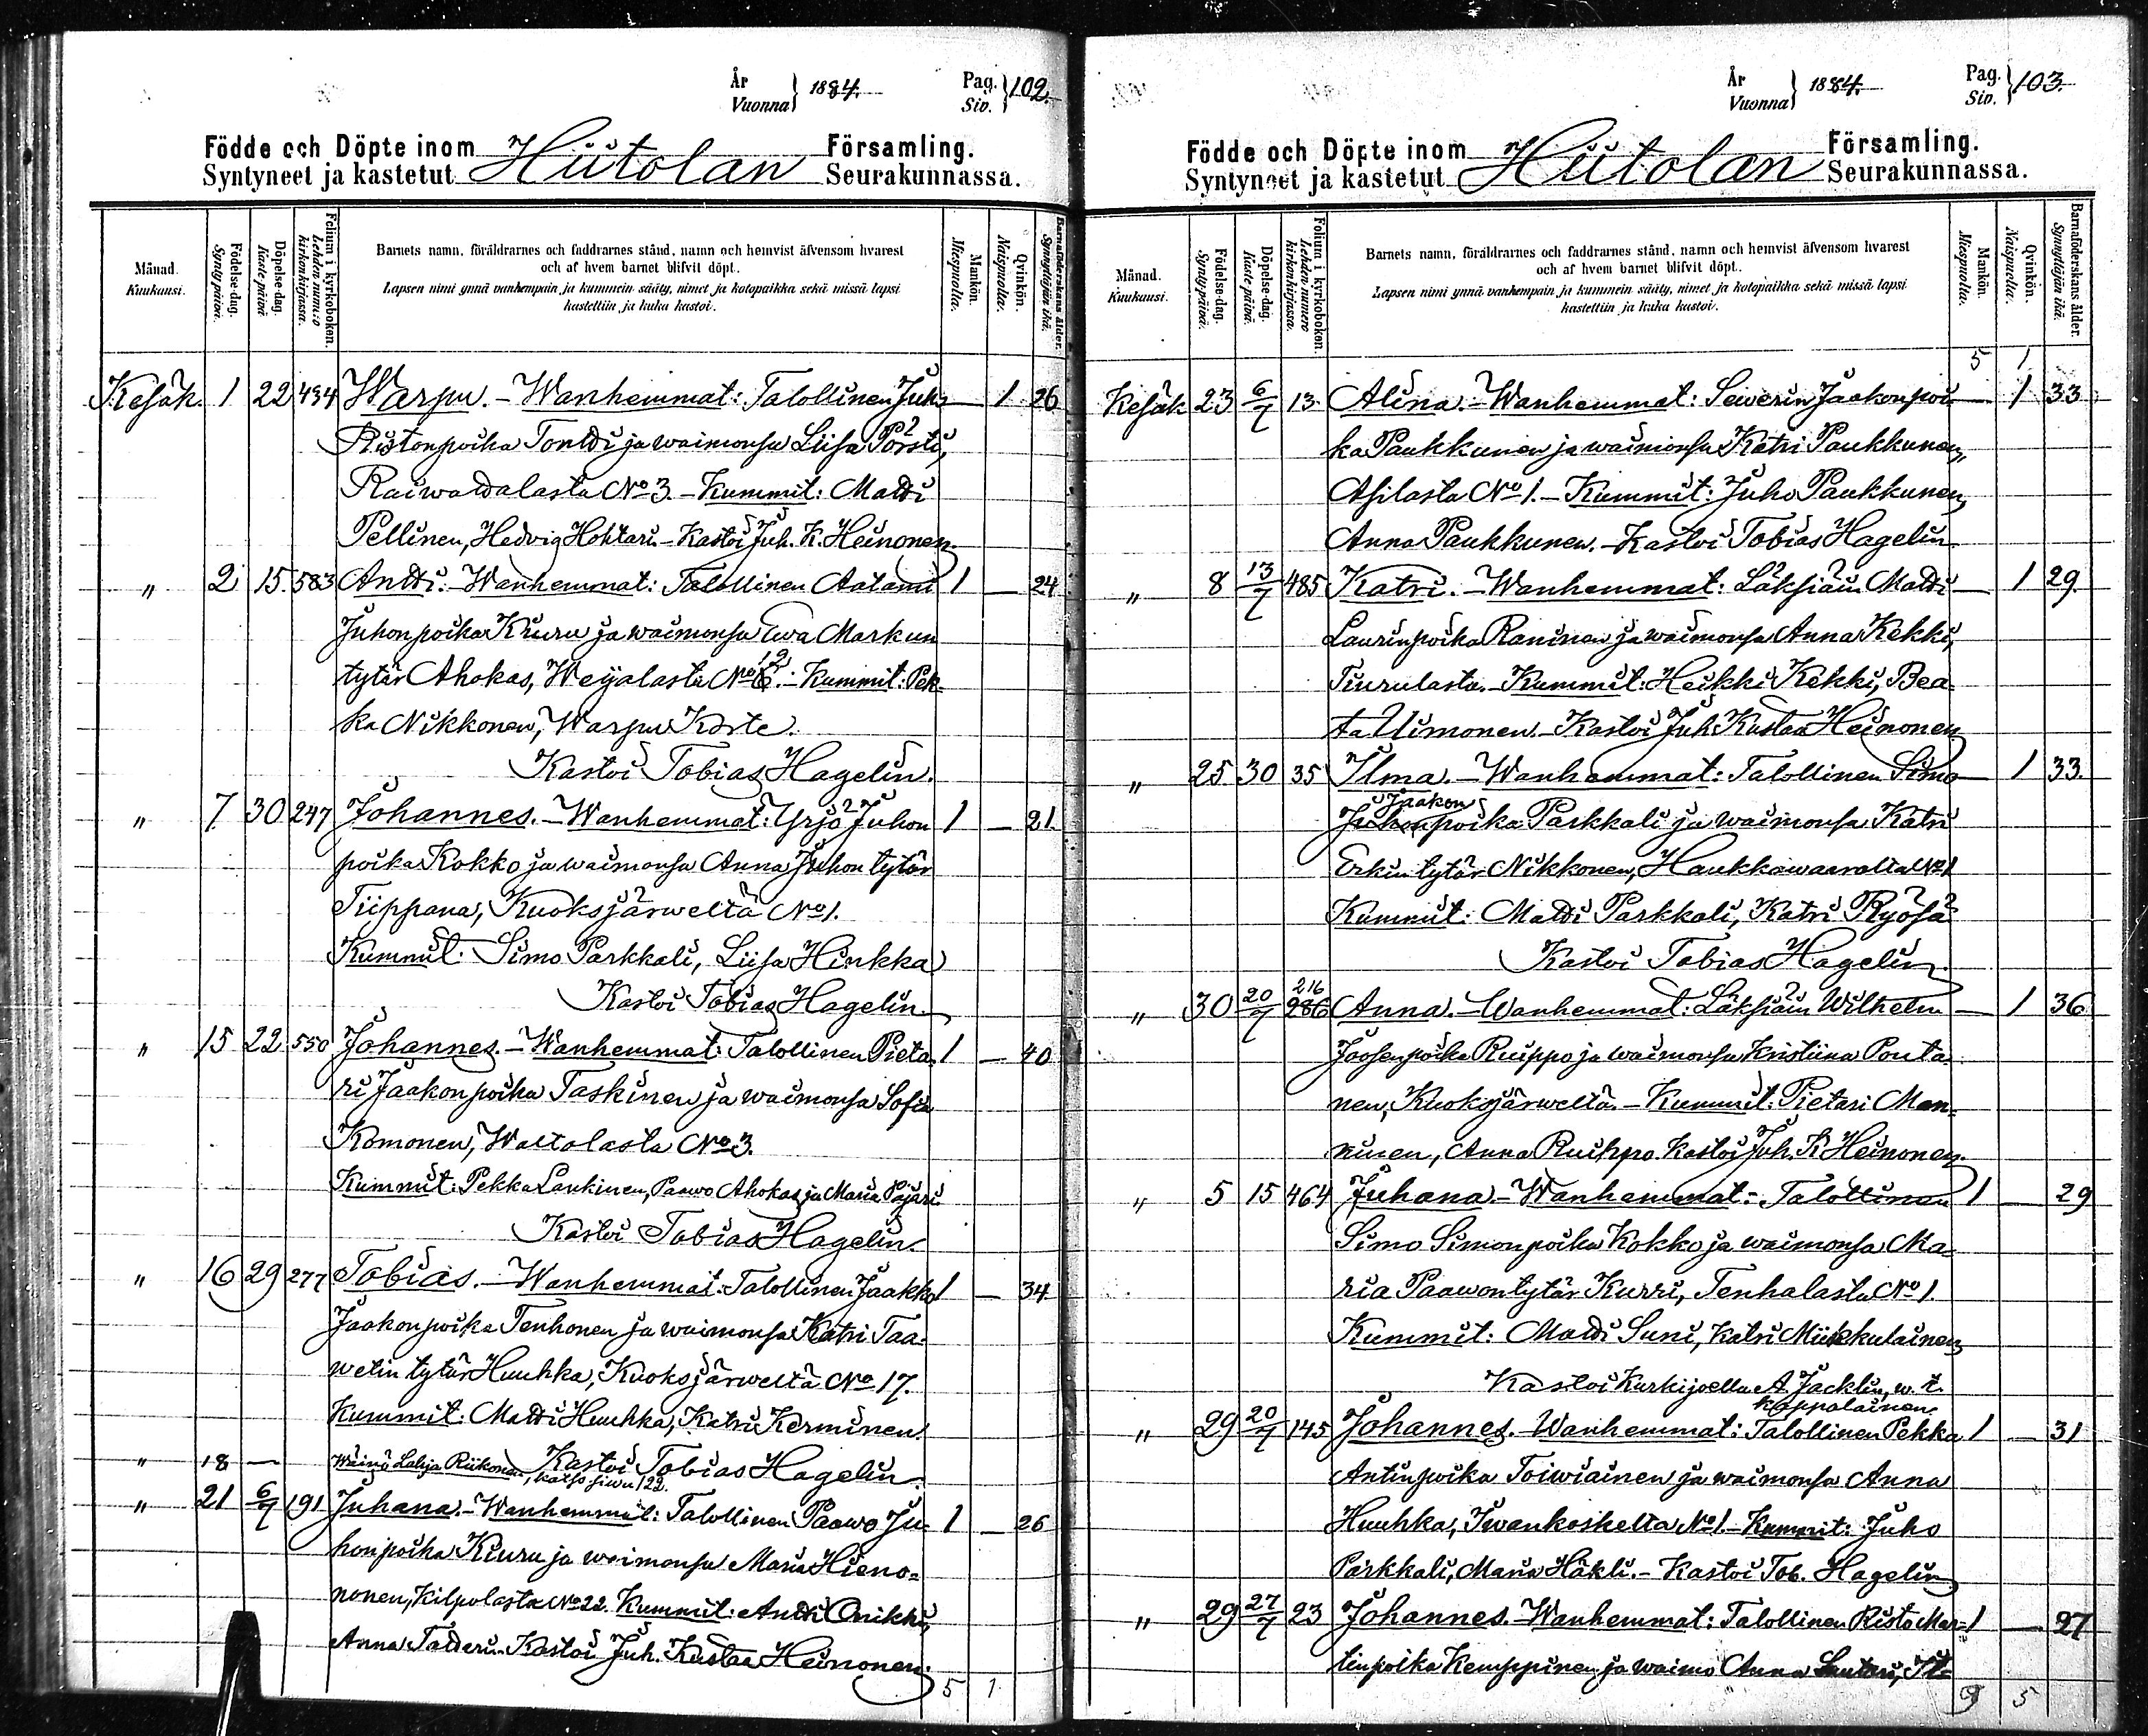 År
Vuonna } 1884. Pag.
Siv. } 102.
Födde och Döpte inom Hiitolan Församling.
Syntyneet ja kastetut Seurakunnassa.
Månad. Kuukausi.
Födelse-dag. Synty-päivä.
Döpelse-dag. Kaste-päivä
Folium i kyrkoboken. Lehden numero kirkonkirjassa.
Barnets namn, föräldrarnes och faddrarnes stånd, namn och hemvist äfvensom hvarest
och af hvem barnet blifvit döpt.
Lapsen nimi ynnä vanhempain ja kummein sääty, nimet ja kotopaikka sekä missä lapsi
kastettiin ja kuka kastoi.
Mankön. Miespuolta.
Qvinkön. Naispuolta.
Barnaföderskans ålder. Synnyttäjän ikä.
Kesäk. 1 22 434 Warpu. - Wanhemmat: Talollinen Juho — 1 26
Ristonpoika Tontti ja waimonsa Liisa Pörsti,
Raiwattalasta No 3. - Kummit: Matti
Pellinen, Hedvig Hohtari - Kastoi Juh. K. Heinonen.
" 2 15. 583 Antti. - Wanhemmat: Talollinen Aatami 1 — 24
Juhonpoika Kiuru ja waimonsa Ewa Markun
tytär Ahokas, Weijalasta No 12. - Kummit: Pek-
ka Nikkonen, Warpu Korte.
Kastoi Tobias Hagelin.
" 7. 30 247 Johannes. - Wanhemmat: Yrjö Juhon 1 — 21.
poika Kokko ja waimonsa Anna Juhon tytär
Tiippana, Kuoksjärweltä No 1.
Kummit: Simo Parkkali, Liisa Hinkka
Kastoi Tobias Hagelin.
" 15 22 550 Johannes. - Wanhemmat: Talollinen Pieta- 1 — 40
ri Jaakonpoika Taskinen ja waimonsa Sofia
Komonen, Waltolasta No 3.
Kummit: Pekka Laukinen, Paawo Ahokas ja Maria Pajari.
Kastoi Tobias Hagelin.
" 16 29 277 Tobias. - Wanhemmat: Talollinen Jaakko 1 — 34.
Jaakonpoika Tenhonen ja waimonsa Katri Taa-
wetin tytär Huuhka, Kuoksjärweltä No 17.
Kummit: Matti Huuhka, Katri Kerminen.
Kastoi Tobias Hagelin.
" 18 — Wäinö Lahja Riikonen, katso siwu 122.
" 21 6/7 191 Juhana. - Wanhemmat: Talollinen Paawo Ju- 1 — 26
honpoika Kiuru ja waimonsa Maria Hieno-
nonen, Kilpolasta No 22. Kummit: Antti Onikki,
Anna Tatteri. Kastoi Juh. Kustaa Heinonen.
5 1
År
Vuonna } 1884. Pag.
Siv. } 103.
Födde och Döpte inom Hiitolan Församling.
Syntyneet ja kastetut Seurakunnassa.
Månad. Kuukausi.
Födelse-dag. Synty-päivä.
Döpelse-dag. Kaste-päivä.
Folium i kyrkoboken. Lehden numero kirkonkirjassa.
Barnets namn, föräldrarnes och faddrarnes stånd, namn och hemvist äfvensom hvarest
och af hvem barnet blifvit döpt.
Lapsen nimi ynnä vanhempain ja kummein sääty, nimet ja kotopaikka sekä missä lapsi
kastettiin ja kuka kastoi.
Mankön. Miespuolta.
Qvinkön. Naispuolta.
Barnaföderskans ålder. Synnyttäjän ikä.
5 1
Kesäk 23 6/7 13 Alina. - Wanhemmat: Sewerin Jaakonpoi- — 1 33
ka Paukkunen ja waimonsa Katri Paukkunen,
Asilasta No 1. - Kummit: Juho Paukkunen,
Anna Paukkunen. - Kastoi Tobias Hagelin
" 8 13/7 485 Katri. - Wanhemmat: Läksiäin Matti — 1 29.
Laurinpoika Raninen ja waimonsa Anna Kekki,
Tiurulasta. - Kummit: Heikki Kekki, Bea-
ta Uimonen. - Kastoi Juh. Kustaa Heinonen
" 25 30 35 Ilma. - Wanhemmat: Talollinen Simo — 1 33.
Jaakon
Juhonpoika Parkkali ja waimonsa Katri
Erkin tytär Nikkonen, Haukkawaaralta No 1
Kummit: Matti Parkkali, Katri Ryösä
Kastoi Tobias Hagelin.
216
" 30 20/7 286 Anna. - Wanhemmat: Läksiäin Wilhelm — 1 36
Joosenpoika Ruippo ja waimonsa Kristiina Pouta-
nen, Kuoksjärweltä. - Kummit: Pietari Man-
ninen, Anna Ruippo. Kastoi Juh. K Heinonen.
" 5 15 464 Juhana. - Wanhemmat: Talollinen 1 — 29
Simo Simonpoika Kokko ja waimonsa Ma-
ria Paawontytär Kurri, Tenhalasta No 1.
Kummit: Matti Suni, Katri Miikkulainen
Kastoi Kurkijoella A. Jacklin, w. t.
kappalainen.
" 29 20/7 145 Johannes. Wanhemmat: Talollinen Pekka 1 — 31
Antinpoika Toiwiainen ja waimonsa Anna
Huuhka, Iwankoskelta No 1. - Kummit: Juho
Parkkali, Maria Häkli. - Kastoi Tob. Hagelin
" 29 27/7 23 Johannes. - Wanhemmat: Talollinen Risto Mar- 1 — 27
tinpoika Kemppinen ja waimo Anna Lautari, It-
9 5